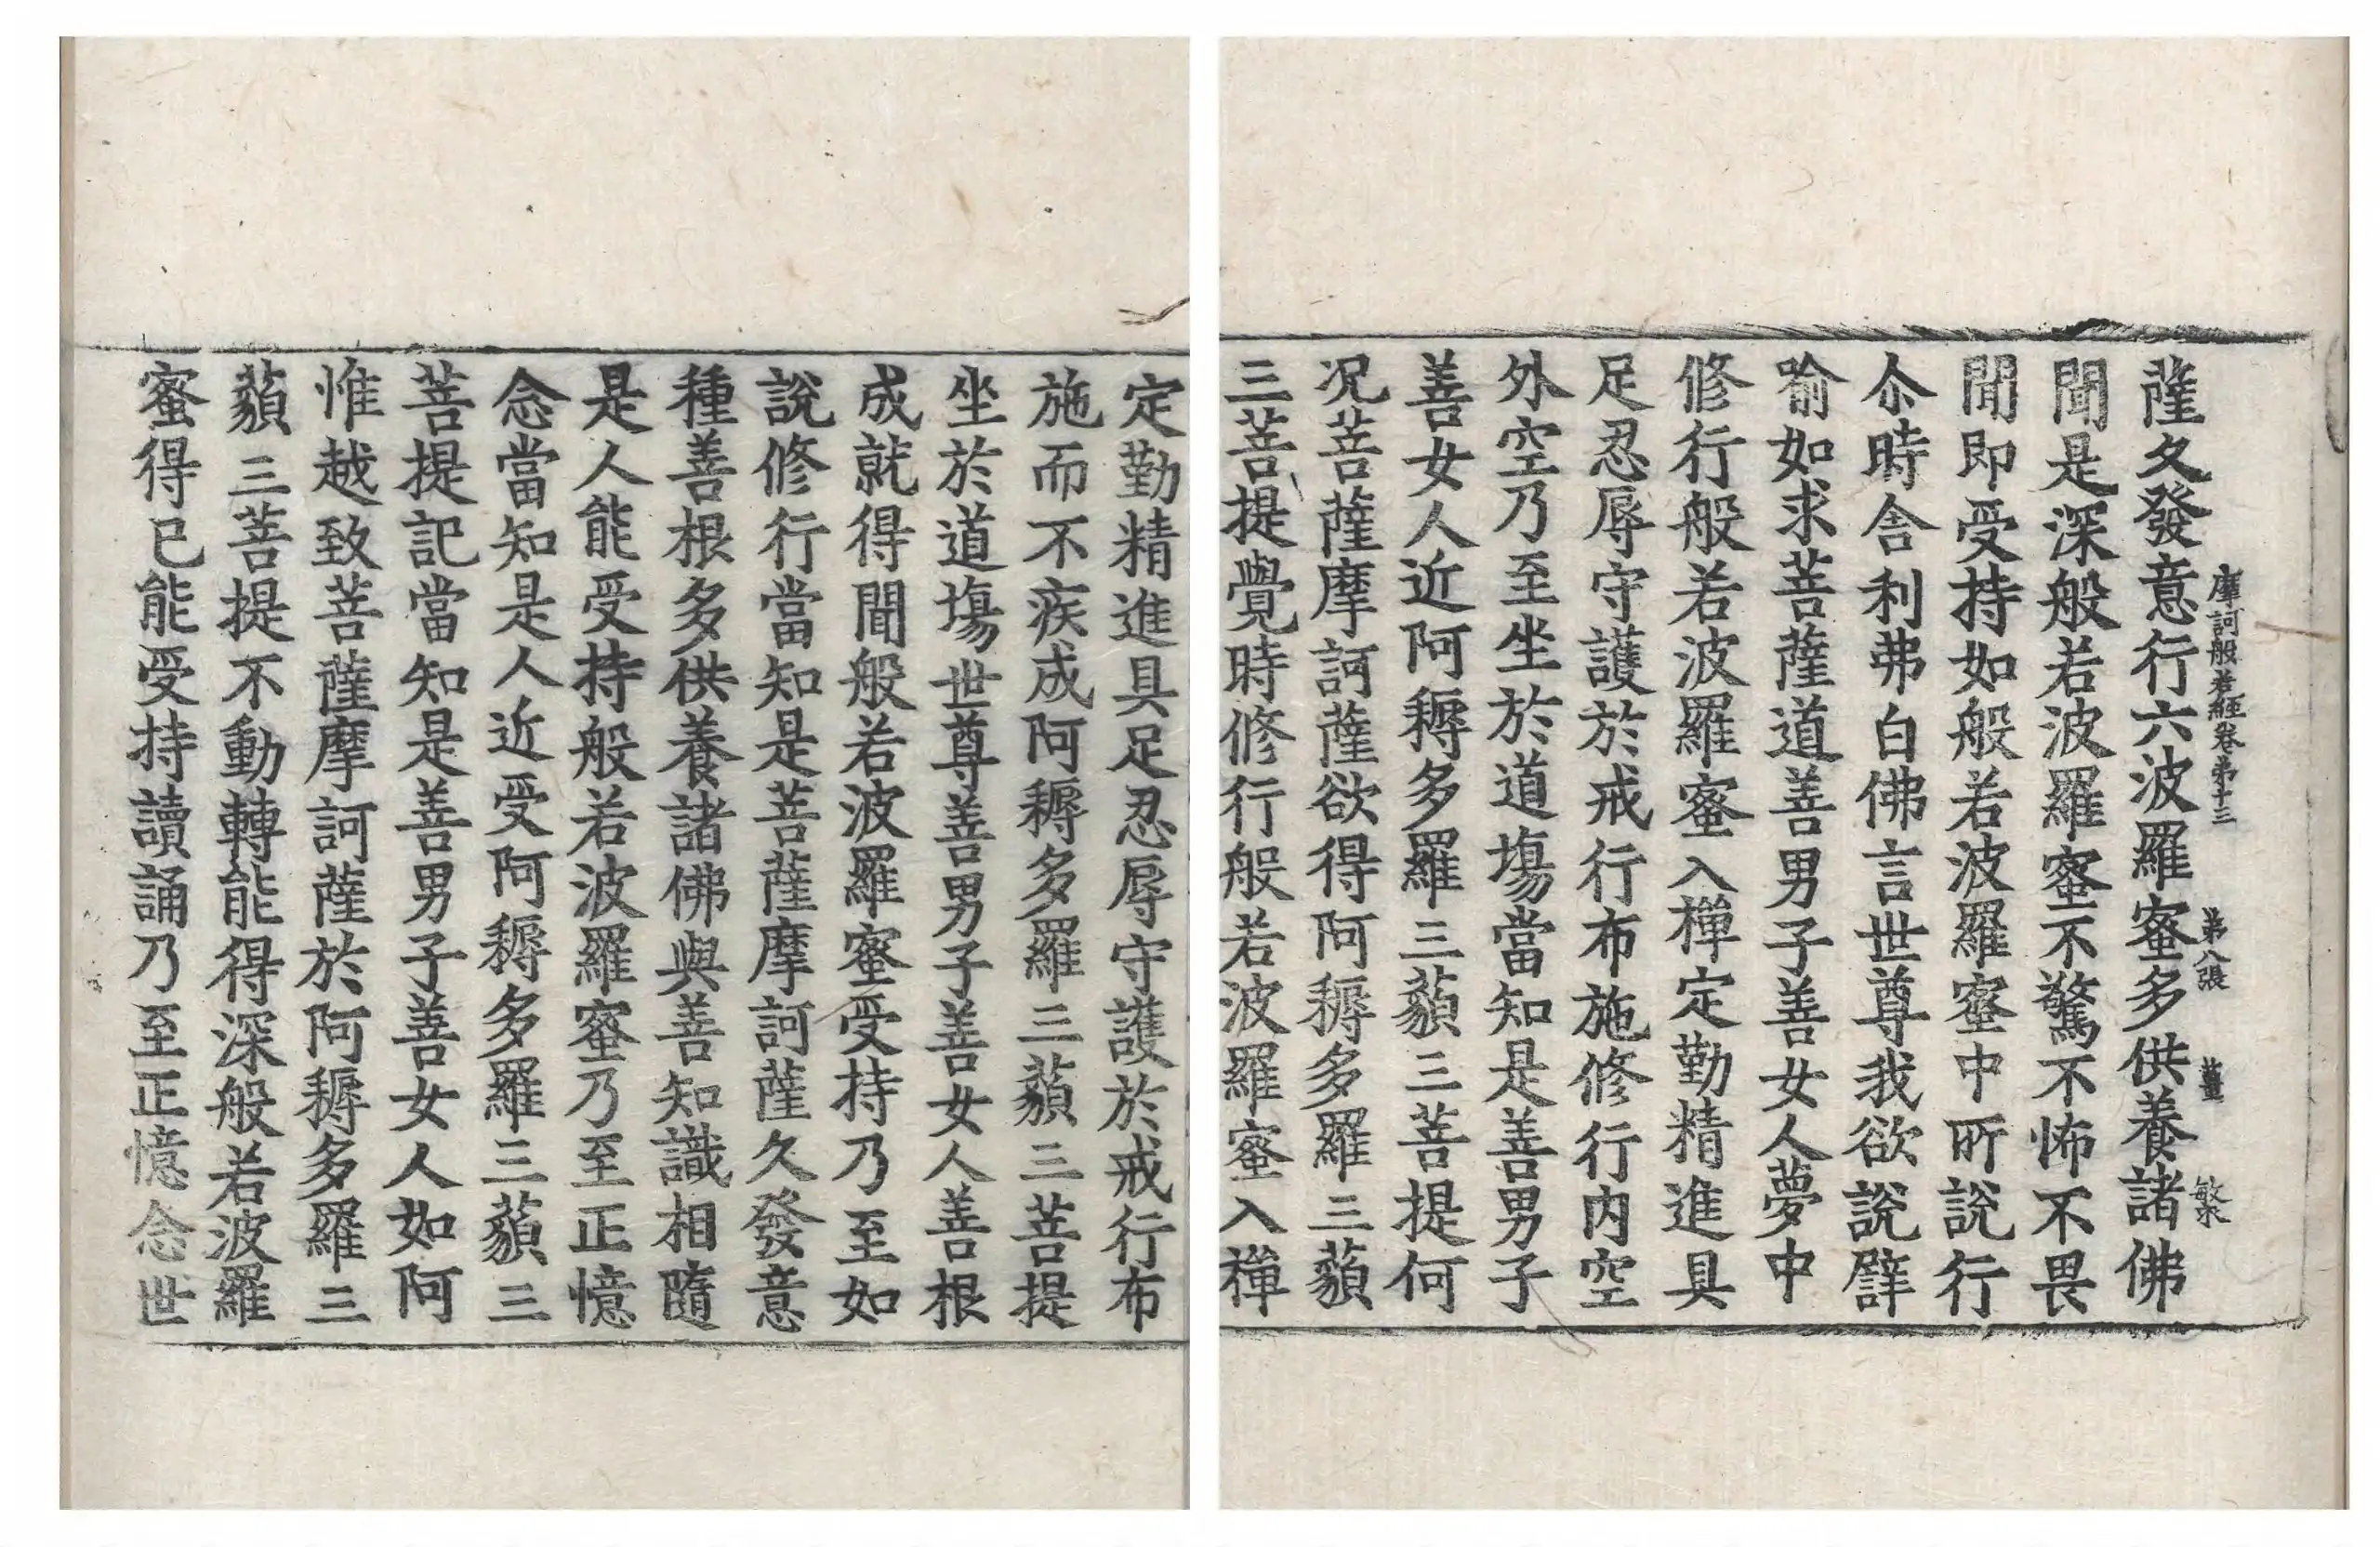 薩久發意行六波羅蜜多供養諸佛
摩訶般若經卷第十三 第八張 薑 敏求
聞是深般若波羅蜜不驚不怖不畏
聞即受持如般若波羅蜜中所說行
尒時舍利弗白佛言世尊我欲說譬
喻如求菩薩道善男子善女人夢中
修行般若波羅蜜入禪定勤精進具
足忍辱守護於戒行布施修行内空
外空乃至坐於道塲當知是善男子
善女人近阿耨多羅三藐三菩提何
况菩薩摩訶薩欲得阿耨多羅三藐
三菩提覺時修行般若波羅蜜入禪
定勤精進具足忍辱守護於戒行布
施而不疾成阿耨多羅三藐三菩提
坐於道塲世尊善男子善女人善根
成就得聞般若波羅蜜受持乃至如
說修行當知是菩薩摩訶薩久發意
種善根多供養諸佛與善知識相隨
是人能受持般若波羅蜜乃至正憶
念當知是人近受阿耨多羅三藐三
菩提記當知是善男子善女人如阿
惟越致菩薩摩訶薩於阿耨多羅三
藐三菩提不動轉能得深般若波羅
蜜得已能受持讀誦乃至正憶念世